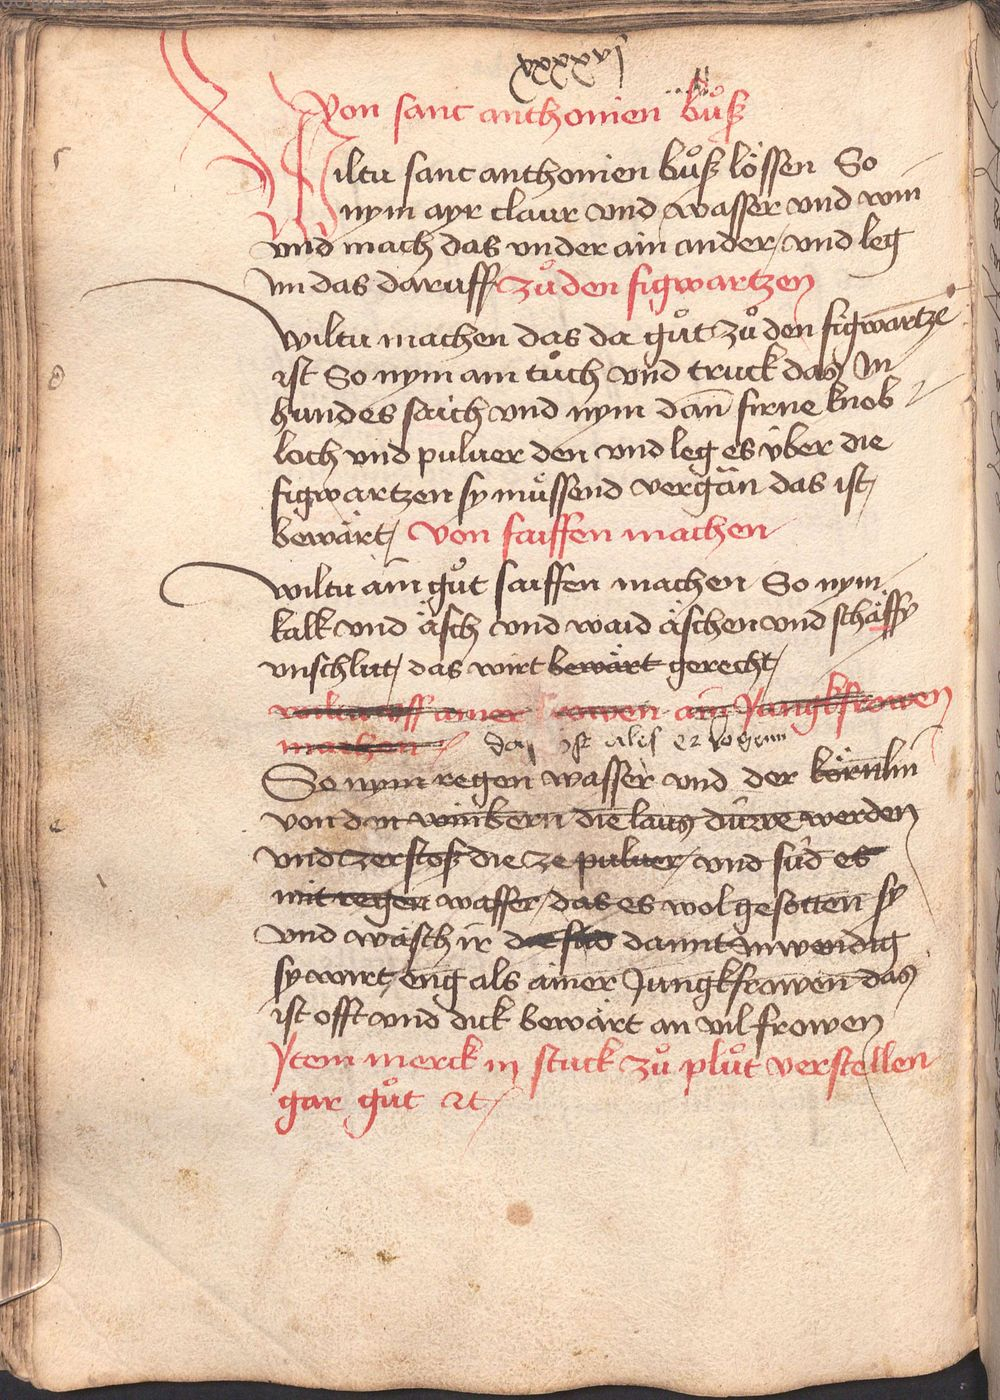 xxxxvj
Von sanc anthonien bůß
Wiltu sanc anthonien bůß lössen So
nym ayr claur vnd wasser vnd win
vnd mach das vnder ain ander / vnd leg
im das daruff zů den figwartzen
wiltu machen das da gůt zů den figwartzē
ist So nym ain tůch vnd truck das In
hundes saich vnd nym dan̄ firne knob
loch vnd puluer den vnd leg es v̈ber die
figwartzen sy mu̇ssend vergän das ist /
bewärt / Von saiffen machen
wiltu ain gůt saiffen machen So nym
kalk vnd äsch vnd waid äschen vnd schäffy
vnschlut / das wirt bewärt gerecht /
wiltu uss ainer frowen ain Jungkfrowen
machen / das ist ales erlogenn
So nym regen wasser vnd der körnlin
von den winbern die laus dürre werden
vnd zerstoß die ze puluer / vnd süd es
mit regen wasser / das es wol gesotten sy
vnd wäsch ir damit inwendig
sy wirt eng als ainer Jungkfrowen das
ist offt vnd dick bewärt an vil frowen
Jtem merck in stuck zů plůt verstellen
gar gůt ⁊t /